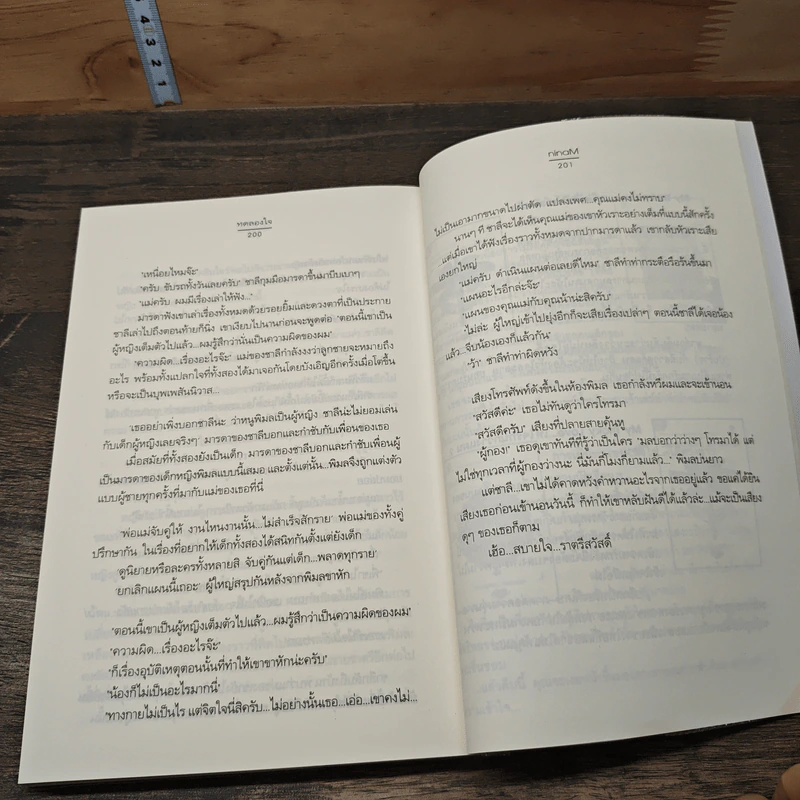 4
3
2
1
ทดลองใจ
200
'เหนื่อยไหมจ๊ะ'
'ครับ ขับรถทั้งวันเลยครับ' ชาลีกุมมือมารดาขึ้นมาบีบเบาๆ
'แม่ครับ ผมมีเรื่องเล่าให้ฟัง...'
มารดาฟังเขาเล่าเรื่องทั้งหมดด้วยรอยยิ้มและดวงตาที่เป็นประกาย
ชาลีเล่าไปถึงตอนท้ายก็นิ่ง เขาเงียบไปนานก่อนจะพูดต่อ 'ตอนนี้เขาเป็น
ผู้หญิงเต็มตัวไปแล้ว...ผมรู้สึกว่านั่นเป็นความผิดของผม'
'ความผิด...เรื่องอะไรจ๊ะ' แม่ของชาลีกำลังงงว่าลูกชายจะหมายถึง
อะไร พร้อมทั้งแปลกใจที่ทั้งสองได้มาเจอกันโดยบังเอิญอีกครั้งเมื่อโตขึ้น
หรือจะเป็นบุพเพสันนิวาส...
'เธออย่าเพิ่งบอกชาลีนะ ว่าหนูพิมลเป็นผู้หญิง ชาลีน่ะไม่ยอมเล่น
กับเด็กผู้หญิงเลยจริงๆ' มารดาของชาลีบอกและกำชับกับเพื่อนของเธอ
เมื่อสมัยที่ทั้งสองยังเป็นเด็ก มารดาของชาลีบอกและกำชับกับเพื่อนผู้
เป็นมารดาของเด็กหญิงพิมลแบบนี้เสมอ และตั้งแต่นั้น...พิมลจึงถูกแต่งตัว
แบบผู้ชายทุกครั้งที่มากับแม่ของเธอที่นี่
'พ่อแม่จับคู่ให้ งานไหนงานนั้น...ไม่สำเร็จสักราย' พ่อแม่ของทั้งคู่
ปรึกษากัน ในเรื่องที่อยากให้เด็กทั้งสองได้สนิทกันตั้งแต่ยังเด็ก
'ดูนิยายหรือละครทั้งหลายสิ จับคู่กันแต่เด็ก...พลาดทุกราย'
'ยกเลิกแผนนี้เถอะ' ผู้ใหญ่สรุปกันหลังจากพิมลขาหัก
'ตอนนี้เขาเป็นผู้หญิงเต็มตัวไปแล้ว...ผมรู้สึกว่าเป็นความผิดของผม'
'ความผิด...เรื่องอะไรจ๊ะ'
'ก็เรื่องอุบัติเหตุตอนนั้นที่ทำให้เขาขาหักน่ะครับ'
'น้องก็ไม่เป็นอะไรมากนี่'
'ทางกายไม่เป็นไร แต่จิตใจนี่สิครับ...ไม่อย่างนั้นเธอ...เอ่อ...เขาคงไม่...
ninaM
201
ไม่เป็นเอามากขนาดไปผ่าตัด แปลงเพศ...คุณแม่คงไม่ทราบ'
นานๆ ที ชาลีจะได้เห็นคุณแม่ของเขาหัวเราะอย่างเต็มที่แบบนี้สักครั้ง
แต่เมื่อเขาได้ฟังเรื่องราวทั้งหมดจากปากมารดาแล้ว เขากลับหัวเราะเสีย
เองยกใหญ่
'แม่ครับ ดำเนินแผนต่อเลยดีไหม' ชาลีทำท่ากระดือรือร้นขึ้นมา
'แผนอะไรอีกล่ะจ๊ะ'
'แผนของคุณแม่กับคุณน้าน่ะสิครับ'
'ไม่ล่ะ ผู้ใหญ่เข้าไปยุ่งอีกก็จะเสียเรื่องเปล่าๆ ตอนนี้ชาลีได้เจอน้อง
แล้ว...จีบน้องเองก็แล้วกัน'
'ว้า' ชาลีทำท่าผิดหวัง
เสียงโทรศัพท์ดังขึ้นในห้องพิมล เธอกำลังหวีผมและจะเข้านอน
'สวัสดีค่ะ' เธอไม่ทันดูว่าใครโทรมา
'สวัสดีครับ' เสียงที่ปลายสายคุ้นหู
'ผู้กอง!' เธอดุเขาทันทีที่รู้ว่าเป็นใคร 'มลบอกว่าว่างๆ โทรมาได้ แต่
ไม่ใช่ทุกเวลาที่ผู้กองว่างนะ นี่มันกี่โมงกี่ยามแล้ว...' พิมลบ่นยาว
แต่ชาลี...เขาไม่ได้คาดหวังคำหวานอะไรจากเธออยู่แล้ว ขอแค่ได้ยิน
เสียงเธอก่อนเข้านอนวันนี้ ก็ทำให้เขาหลับฝันดีได้แล้วล่ะ...แม้จะเป็นเสียง
ดุๆ ของเธอก็ตาม
เฮ้อ...สบายใจ...ราตรีสวัสดิ์